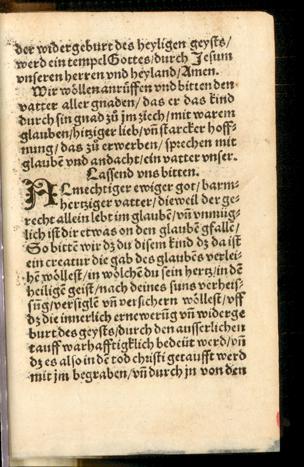 der widergeburt des heyligen geysts/
werd ein tempel Gottes/durch Jesum
vnseren herren vnd heyland/Amen.
Wir wöllen anrüffen vnd bitten den
vatter aller gnaden/das er das kind
durch sin gnad zů jm ziech/mit warem
glauben/hitziger lieb/vñ starcker hoff-
nung/das zů erwerben/sprechen mit
glaubẽ vnd andacht/ein vatter vnser.
Lassend vns bitten.
ALmechtiger ewiger got/barm-
hertziger vatter/dieweil der ge-
recht allein lebt im glaubẽ/vñ vnmüg-
lich ist dir etwas on den glaubẽ gfallẽ/
So bittẽ wir dʒ du disem kind dʒ da ist
ein creatur die gab des glaubẽs verlei-
hẽ wöllest/in wölchẽ du sein hertz/in dẽ
heiligẽ geist/nach deines suns verheis-
sũg/versiglẽ vñ versichern wöllest/vff
dʒ die innerlich ernewerũg vñ widerge
burt des geysts/durch den ausserlichen
tauff warhafftigklich bedeüt werd/vñ
dʒ es also in dẽ tod christi getaufft werd
mit jm begraben/vñ durch jn von den